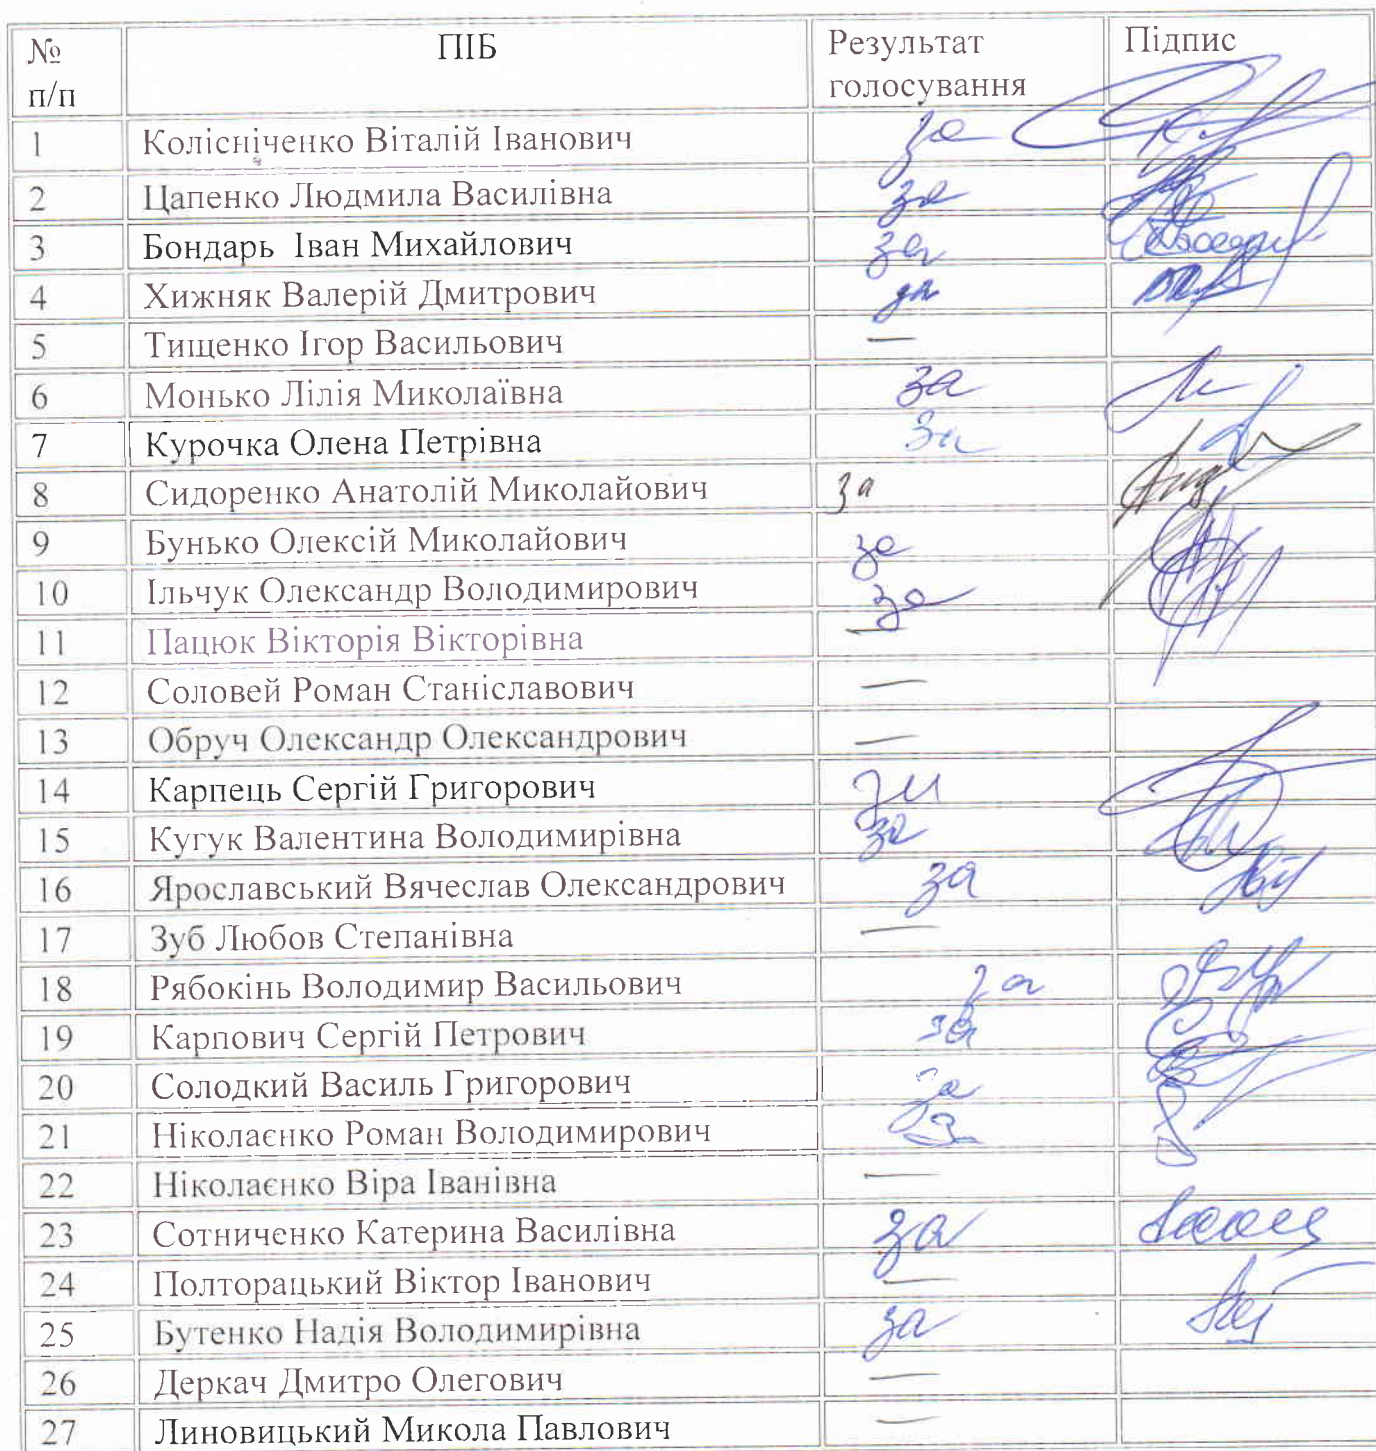 № п/п ПІБ Результат голосування Підпис
1 Колісніченко Віталій Іванович за
2 Цапенко Людмила Василівна за
3 Бондарь Іван Михайлович за
4 Хижняк Валерій Дмитрович за
5 Тищенко Ігор Васильович —
6 Монько Лілія Миколаївна за
7 Курочка Олена Петрівна за
8 Сидоренко Анатолій Миколайович за
9 Бунько Олексій Миколайович за
10 Ільчук Олександр Володимирович за
11 Пацюк Вікторія Вікторівна —
12 Соловей Роман Станіславович —
13 Обруч Олександр Олександрович —
14 Карпець Сергій Григорович за
15 Кугук Валентина Володимирівна за
16 Ярославський Вячеслав Олександрович за
17 Зуб Любов Степанівна —
18 Рябокінь Володимир Васильович за
19 Карпович Сергій Петрович за
20 Солодкий Василь Григорович за
21 Ніколаєнко Роман Володимирович
22 Ніколаєнко Віра Іванівна —
23 Сотниченко Катерина Василівна за
24 Полторацький Віктор Іванович —
25 Бутенко Надія Володимирівна за
26 Деркач Дмитро Олегович —
27 Линовицький Микола Павлович —